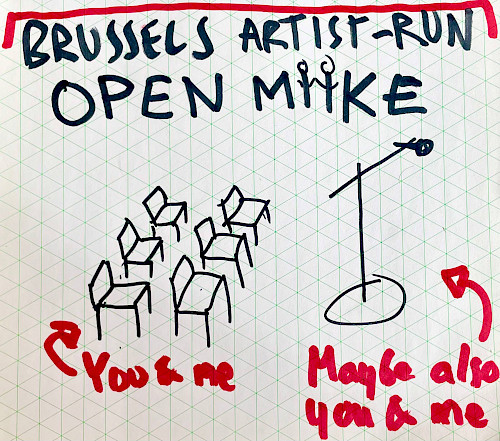 BRUSSELS ARTIST-RUN
OPEN MIIKE
You & me
Maybe also
you & me